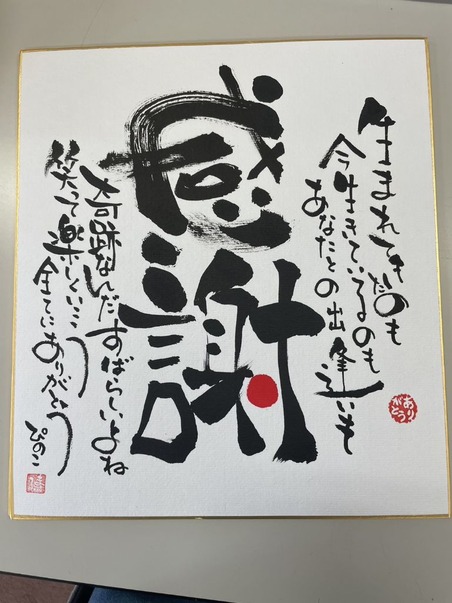 生まれてきたのも
今生きているのも
あなたとの出逢いも
感謝
奇跡なんだすばらしいよね
笑って楽しくいこう
全てにありがとう
ぴのこ
ありがとう